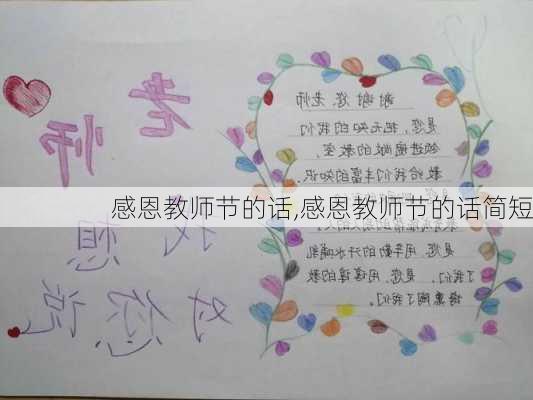 老师
想
对您说
谢谢您.老师
是您,把无知的我们
领进宽敞的教室,
教给我们丰富的知识.
感恩教师节的话,感恩教师节的话简短
是您.用辛勤的汗水哺乳
了我们。是您.用谆谆的教
了我们。